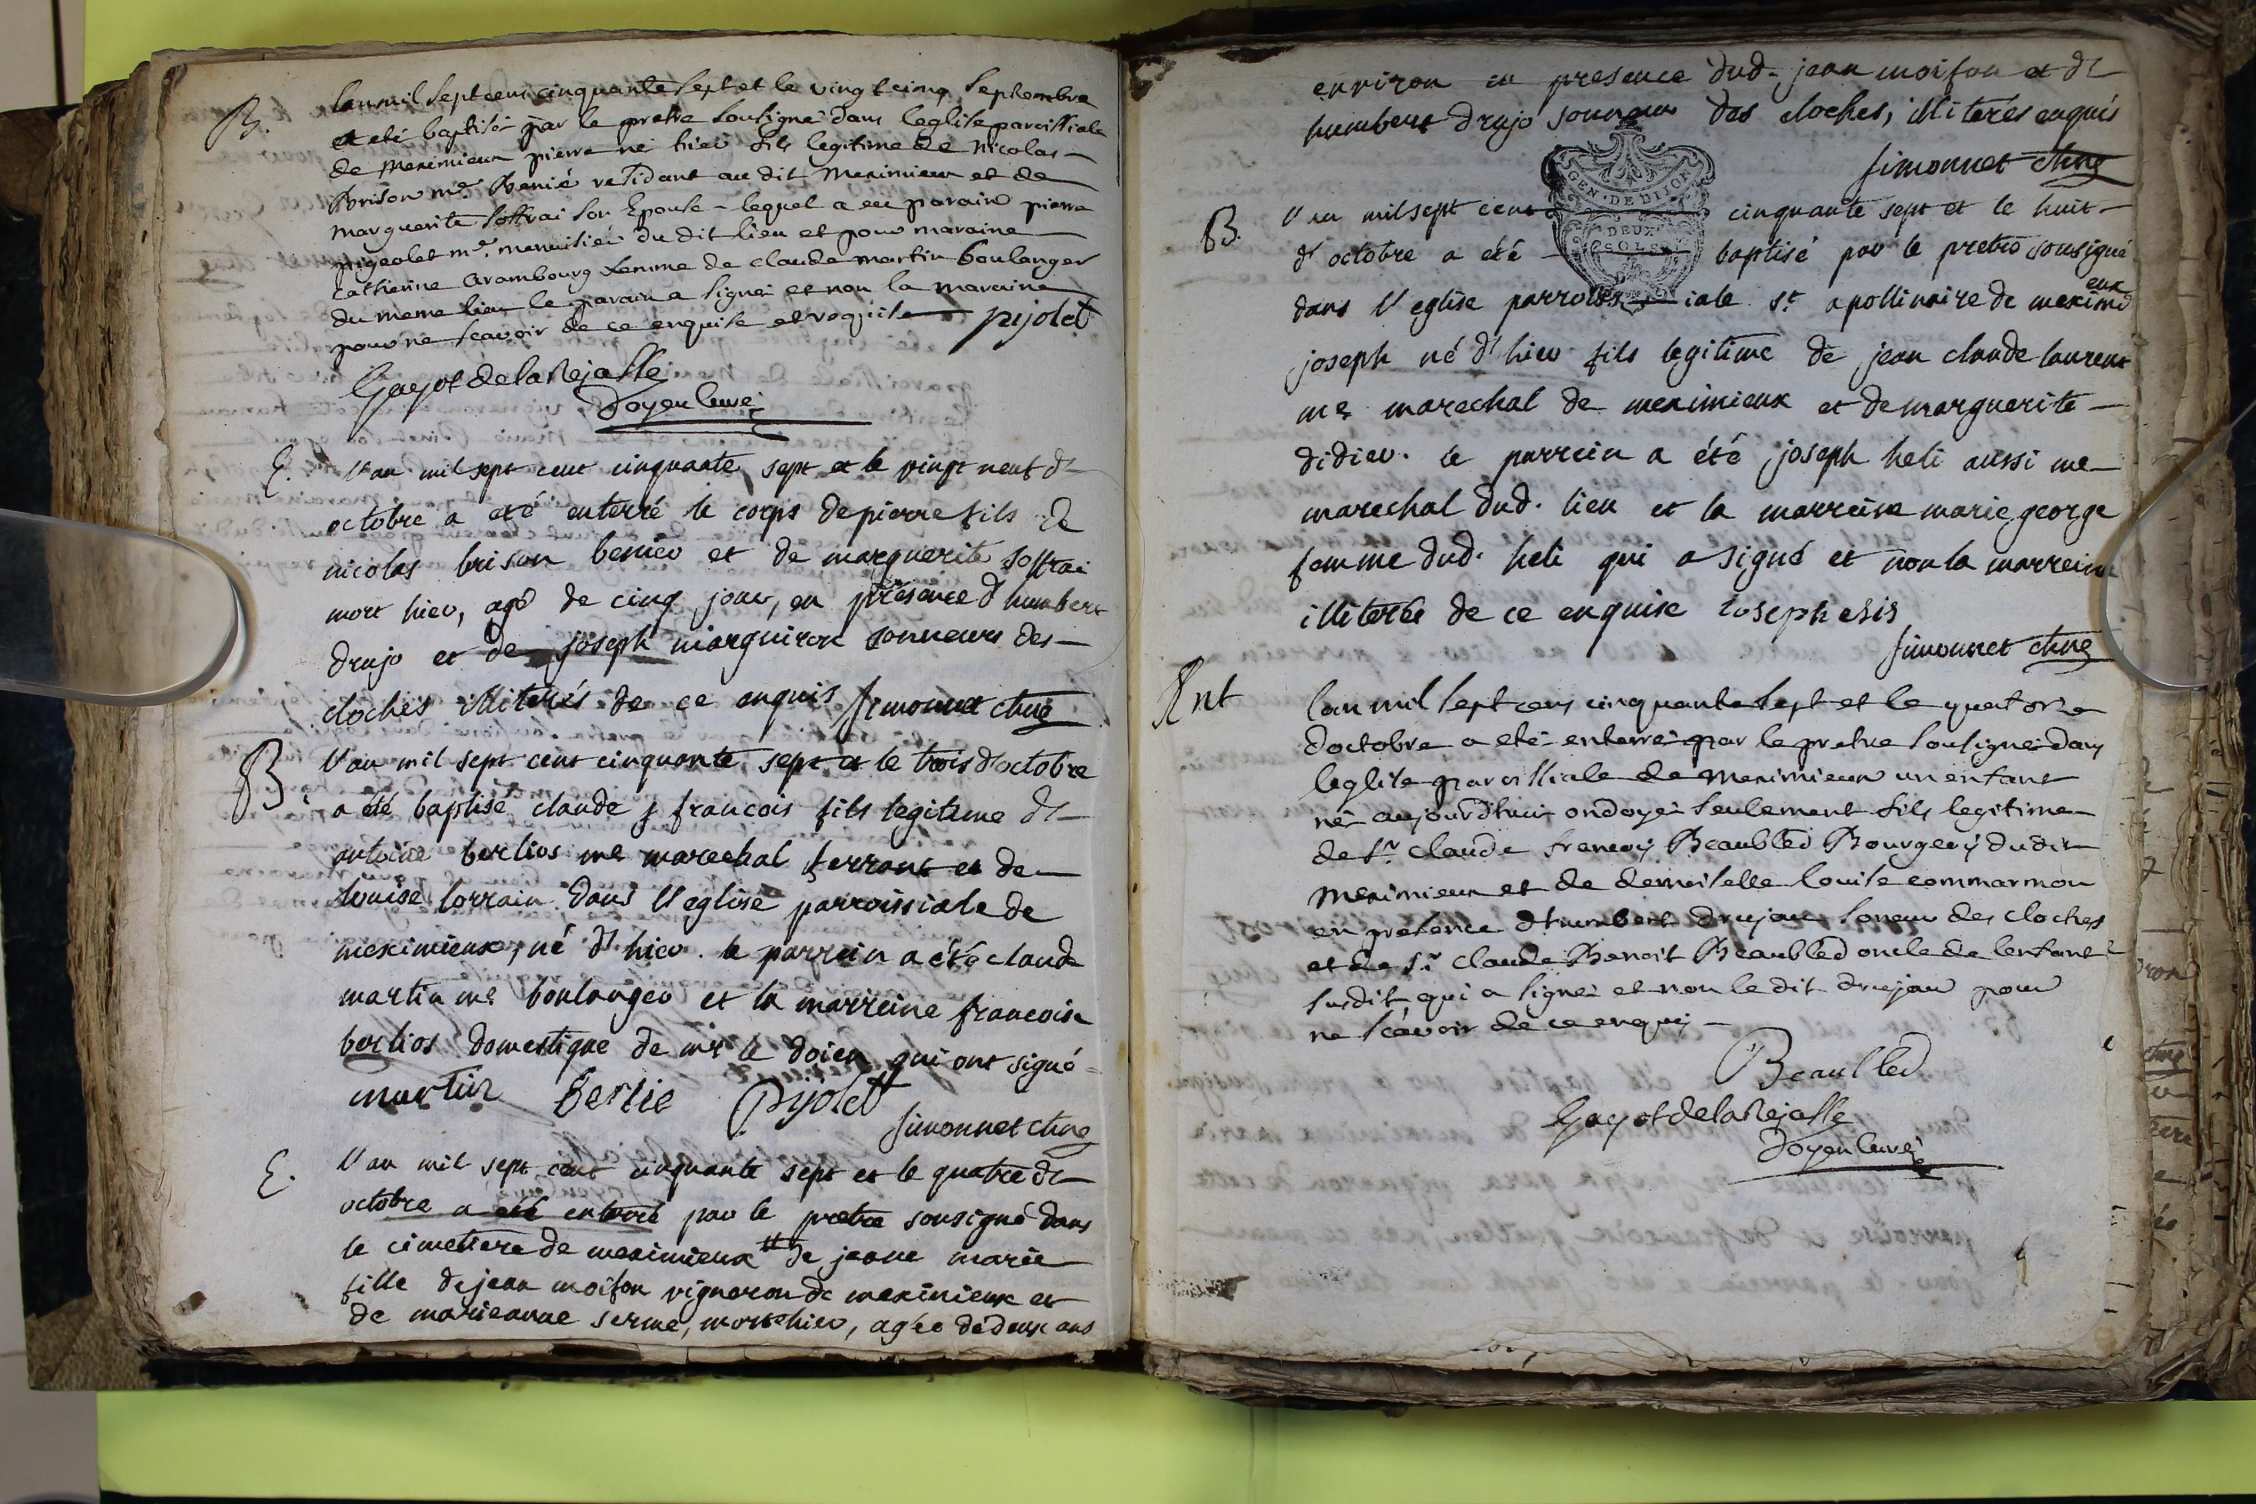 B.
lan mil sept cens cinquante sept et le vingt cinq septembre
a eté baptisé par le pretre sousigné dans leglise paroissiale
de meximieux pierre né hier fils legitime de nicolas
Brison me. Benié residant au dit meximieux et de
marguerite soffrai son Epouse - lequel a eu parain pierre
pigeolet me. menuisier du dit lieu et pour maraine
catherine arambourg femme de claude martin boulanger
du meme lieu le parain a signé et non la maraine
pour ne scavoir de ce enquise et requise pijolet
Gayot de la Rejasse
Doyen Curé
E.
l'an mil sept cent cinquante sept et le vingt neuf d'
octobre a eté enterré le corps de pierre fils de
nicolas brison benier et de marguerite soffrai
mort hier, agé de cinq jour, en présence d'humbert
drujo et de joseph marguiron sonneurs des
cloches illiterés de ce enquis simonnet
B.
l'an mil sept cent cinquante sept et le trois d'octobre
a été baptisé claude francois fils legitime d'
antoine berlios me marechal ferrant et de
louise lorrain dans l'eglise parroissiale de
meximieux, né d'hier. le parrein a été claude
martin me boulanger et la marreine francoise
berlios domestique de mr le doien qui ont signé
martin berlie Pijolet
simonnet
E.
l'an mil sept cent cinquante sept et le quatre d'
octobre a été enterré par le pretre sousigné dans
le cimetiere de meximieux de jeane marie
fille de jean moifon vigneron de meximieux et
de marieanne serme, morte hier, agée de deux ans
environ en presence dud. jean moifon et d'
humbert drujo sonneur des cloches, illiterés enquis
simonnet
GEN. DE DIJON
DEUX
SOLS
B.
l'an mil sept cent cinquante sept et le huit
d'octobre a été baptisé par le pretre sousigné
dans l'eglise parroissiale st. apollinaire de meximieux
joseph né d'hier fils legitime de jean claude laurent
me marechal de meximieux et de marguerite
didier. le parrein a été joseph heli aussi me
marechal dud. lieu et la marreine marie george
femme dud. heli qui a signé et non la marreine
illiterée de ce enquise ioseph elis
simonnet
Ent
lan mil sept cens cinquante sept et le quatorze
doctobre a eté enterré par le pretre sousigné dans
leglise paroissiale de meximieux un enfant
né aujourdhuir ondoyé seulement fils legitime
de sr. claude francois Beaubled Bourgeois du dit
meximieux et de demoiselle louise commarmon
en presence dhumbert drujau soneur des cloches
et de sr. claude Benoit Beaubled oncle de lenfant
susdit qui a signé et non le dit drujau pour
ne scavoir de ce enquis
Beaubled
Gayot de la Rejasse
Doyen Curé